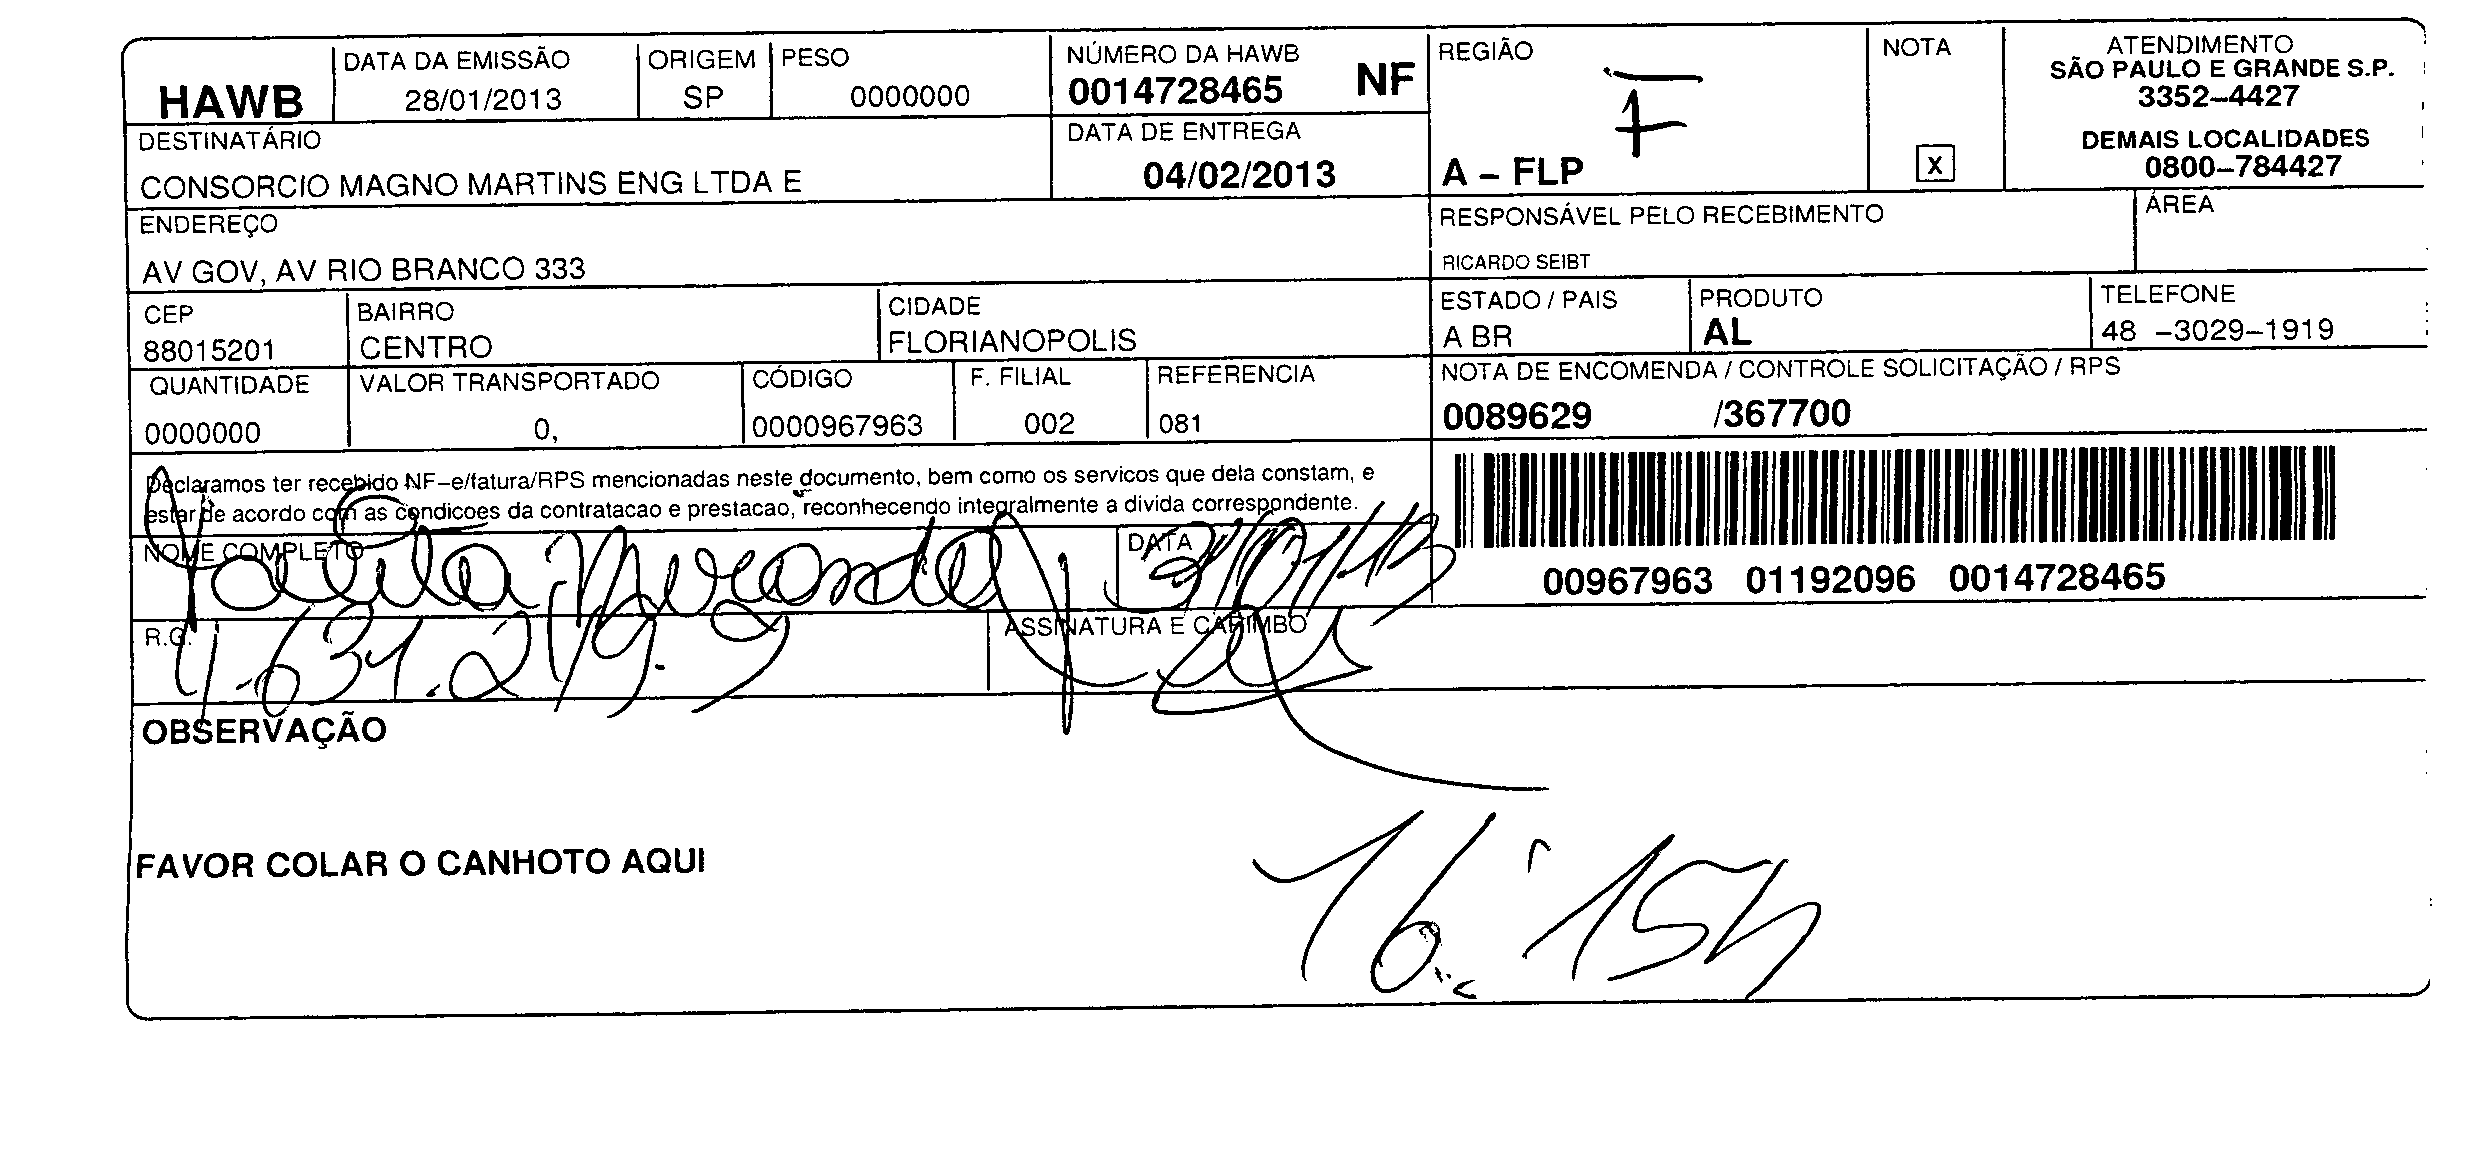 HAWB
DATA DA EMISSÃO
28/01/2013
ORIGEM
SP
PESO
0000000
NÚMERO DA HAWB
0014728465 NF
REGIÃO
F
A – FLP
NOTA
X
ATENDIMENTO
SÃO PAULO E GRANDE S.P.
3352–4427
DEMAIS LOCALIDADES
0800–784427
DESTINATÁRIO
CONSORCIO MAGNO MARTINS ENG LTDA E
DATA DE ENTREGA
04/02/2013
ENDEREÇO
AV GOV, AV RIO BRANCO 333
RESPONSÁVEL PELO RECEBIMENTO
RICARDO SEIBT
ÁREA
CEP
88015201
BAIRRO
CENTRO
CIDADE
FLORIANOPOLIS
ESTADO / PAIS
A BR
PRODUTO
AL
TELEFONE
48 –3029–1919
QUANTIDADE
0000000
VALOR TRANSPORTADO
0,
CÓDIGO
0000967963
F. FILIAL
002
REFERENCIA
081
NOTA DE ENCOMENDA / CONTROLE SOLICITAÇÃO / RPS
0089629 /367700
Declaramos ter recebido NF–e/fatura/RPS mencionadas neste documento, bem como os servicos que dela constam, e
estar de acordo com as condicoes da contratacao e prestacao, reconhecendo integralmente a divida correspondente.
NOME COMPLETO
DATA
31/01/13
00967963 01192096 0014728465
R.G.
ASSINATURA E CARIMBO
OBSERVAÇÃO
FAVOR COLAR O CANHOTO AQUI
16:15h